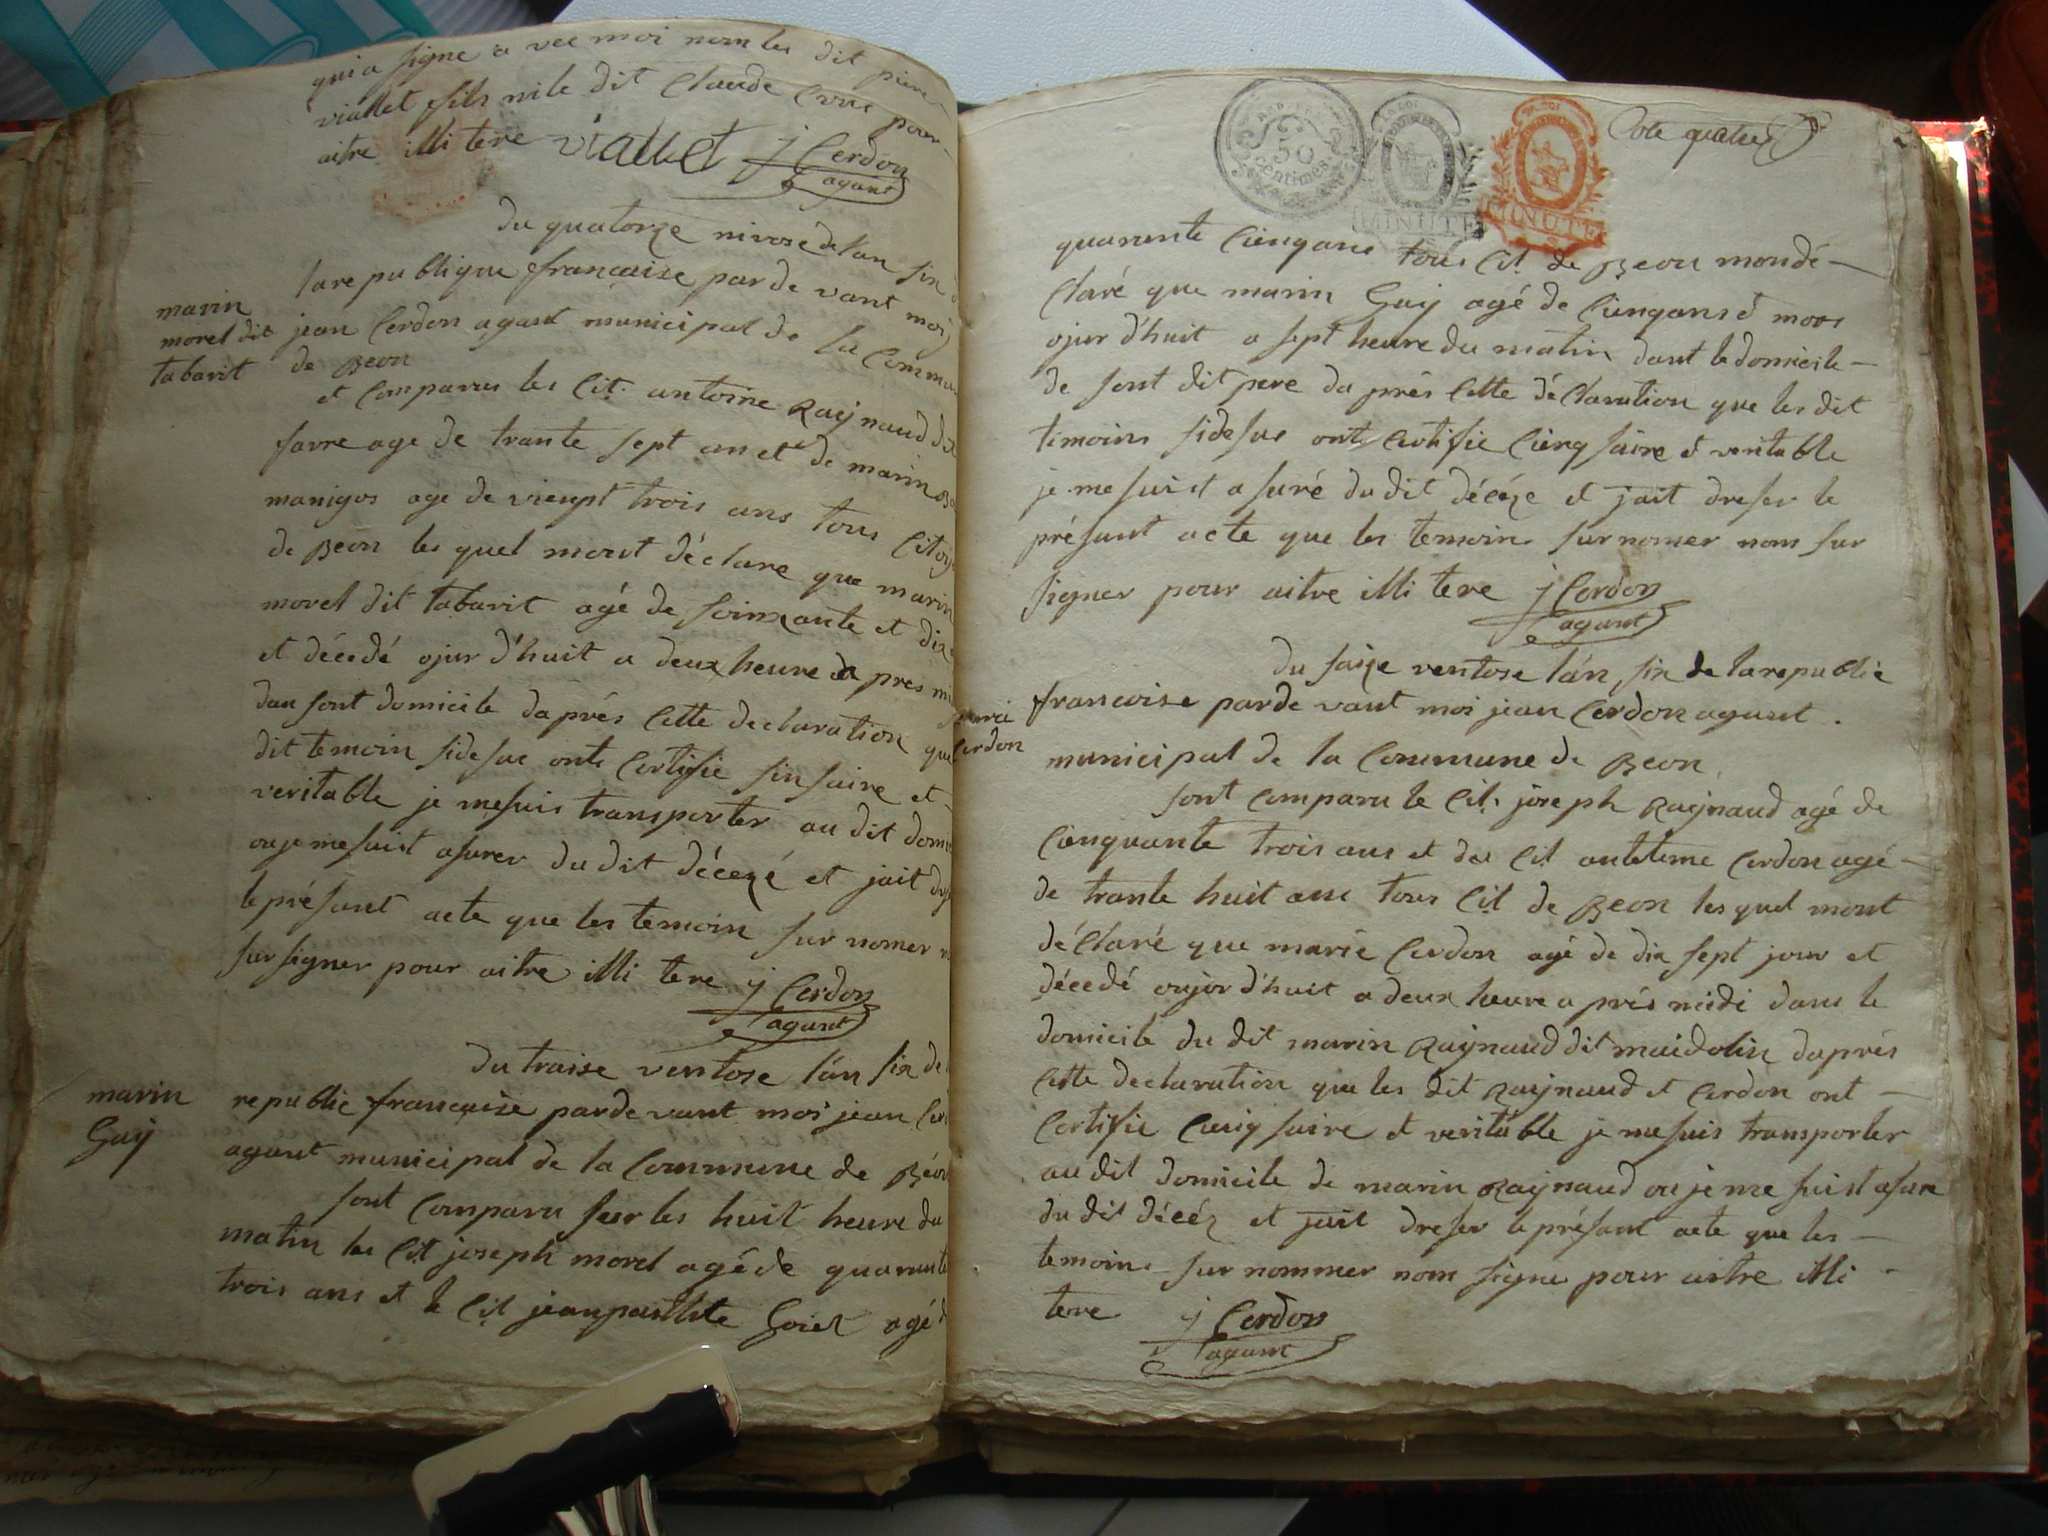 qui a signe a vec moi nom les dit piere
viallet fils ni le dit Claude pour
aitre illi tere viallet j Cerdon
agant
du quatorze nivose de lan six d
la re publique francaise par de vant moi
marin
morel dit
tabarit
jean Cerdon agant municipal de la Commun
de Beon
et Comparus les Cit. antoine Raynaud dit
favre age de trante sept an et de marin
manigos age de vieupt trois ans tous Citoy
de Beon les quel mont déclare que marin
morel dit tabarit agé de soinxante et dix
et décedé ojur d'huit a deux heure a pres mi
dan sont domicile daprés Cette declaration que
dit temoin side sue onts Certifie sinsaire et
veritable je me suis transporter au dit domi
ou je me suist asurer du dit décezé et jait dres
le présant acte que les temoin sur nomer n
sur signer pour aitre illi tere j Cerdon
agant
du traise ventose l'án six de
marin
Gay
republic française par de vant moi jean Cer
agant municipal de la Commune de Béon
sont Comparu sur les huit heure du
matin les Cit joseph morel agé de quarante
trois ans et le Cit jean pasthte Goiet agé d
50
Centimes
LA LOI
MINUTE
LA LOI
MINUTE
Cote quatre
quarente Ciengans tous Cit. de Beon mon dé-
Claré que marin Gay agé de Ciengans et moos
ojur d'huit a sept heure du matin dant le domicile
de sont dit pere da prés Cette déclaration que les dit
temoins side sue onts Certifie Cienq saire et veritable
je me suist a suré du dit décéze et jait dreser le
présant acte que les temoins sur nomer nom sur
signer pour aitre illi tere j Cerdon
agant
du saize ventose l'án six de la republic
marie
Cerdon
francoise par de vant moi jean Cerdon agant.
municipal de la Commune de Beon
sont Comparu le Cit. joseph Raynaud agé de
Cienquante trois ans et du Cit anteteme Cerdon agé
de trante huit ans tous Cit de Beon les quel mont
déClaré que marie Cerdon agé de dix sept jour et
décedé oujor d'huit a deux heure a prés midi dans le
domicile du dit marin Raynaud dit maidolin daprés
Cette declaration que les dit Raynaud et Cerdon ont
Certifie Cienq saire et veritable je me suis transporter
au dit domicile de marin Raynaud ou je me suist asure
du dit décéz et jait dreser le présant acte que les
temoins sur nommer nom signe pour aitre illi
tere j Cerdon
agant